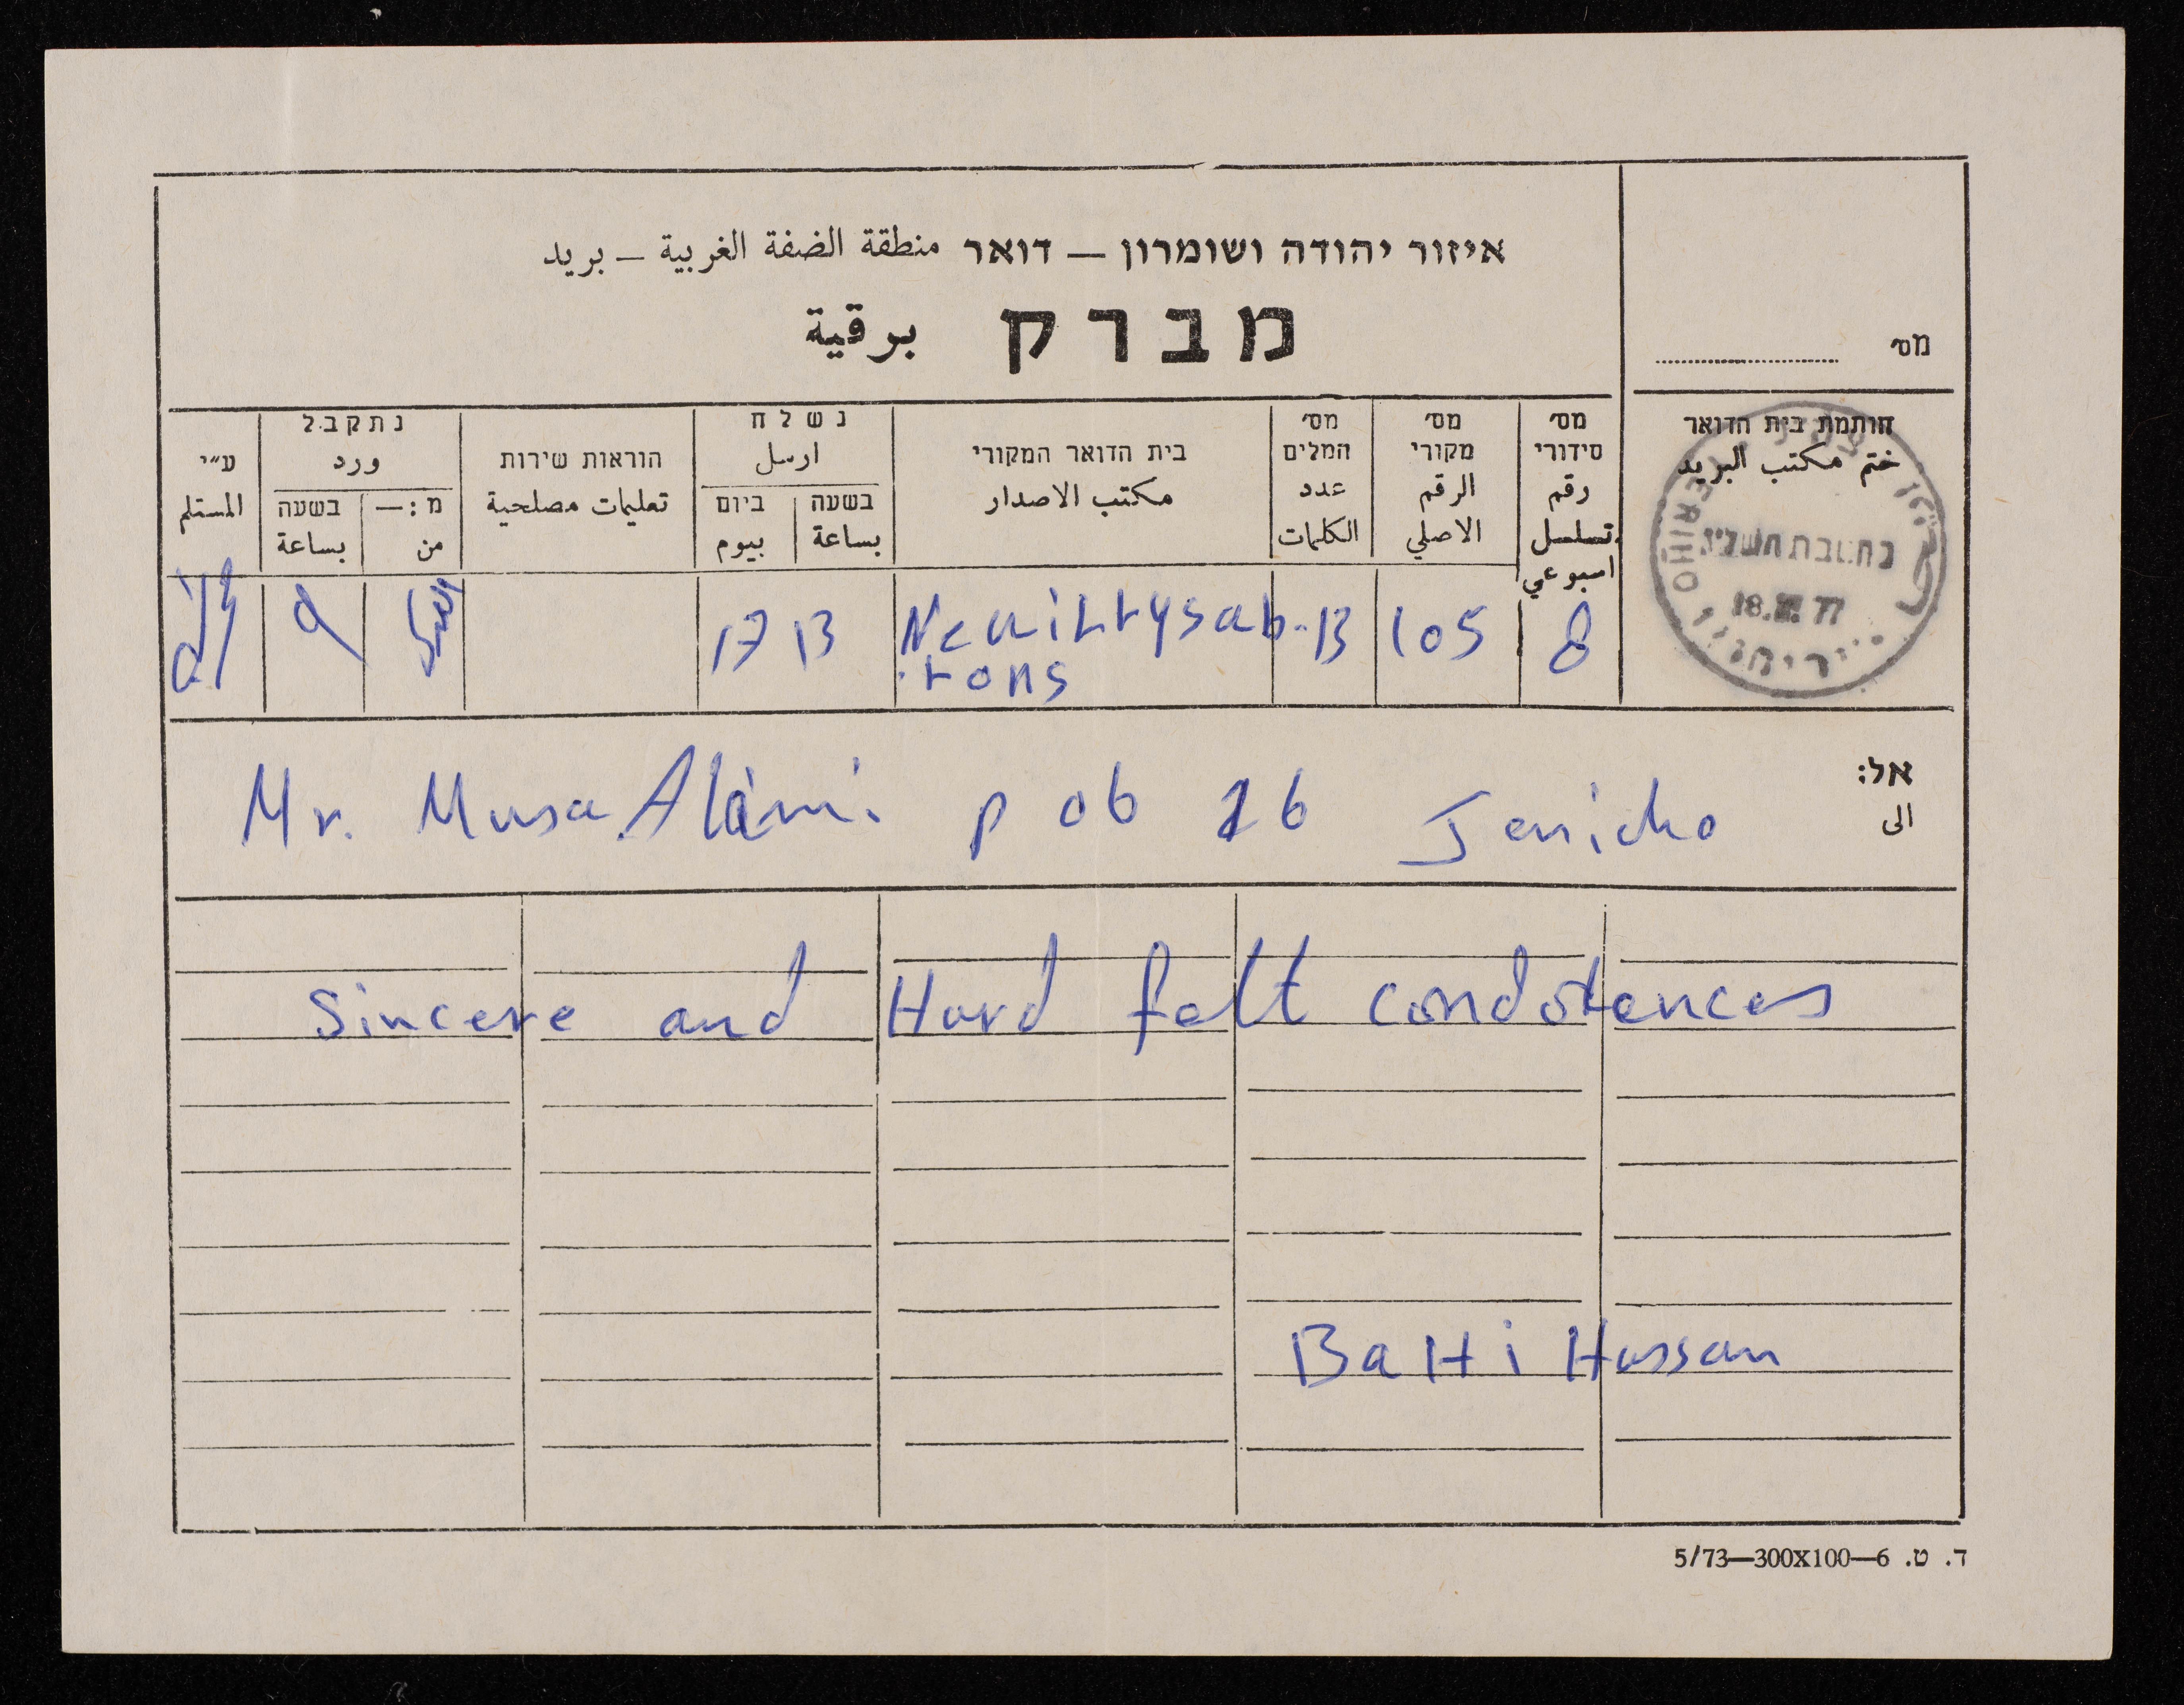 איזור יהודה ושומרון — דואר منطقة الضفة الغربية — بريد
מברק برقية
מס׳
חותמת בית הדואר
ختم مكتب البريد
JERICHO
18. 77
יריחו
מס׳ סידורי رقم تسلسل اسبوعي
מס׳ מקורי الرقم الاصلي
מס׳ המלים عدد الكلمات
בית הדואר המקורי مكتب الاصدار
נשלח ارسل
בשעה بساعة
ביום بيوم
הוראות שירות تعليمات مصلحية
נתקבל ورد
מ:— من
בשעה بساعة
ע״י المستلم
8 105 13 13 17
rons
אל: الى
Mr. Musa Alami p ob 26 Jericho
Sincere and Hard felt condolences
BaHi Hassan
ד. ט. 6—300X100—5/73